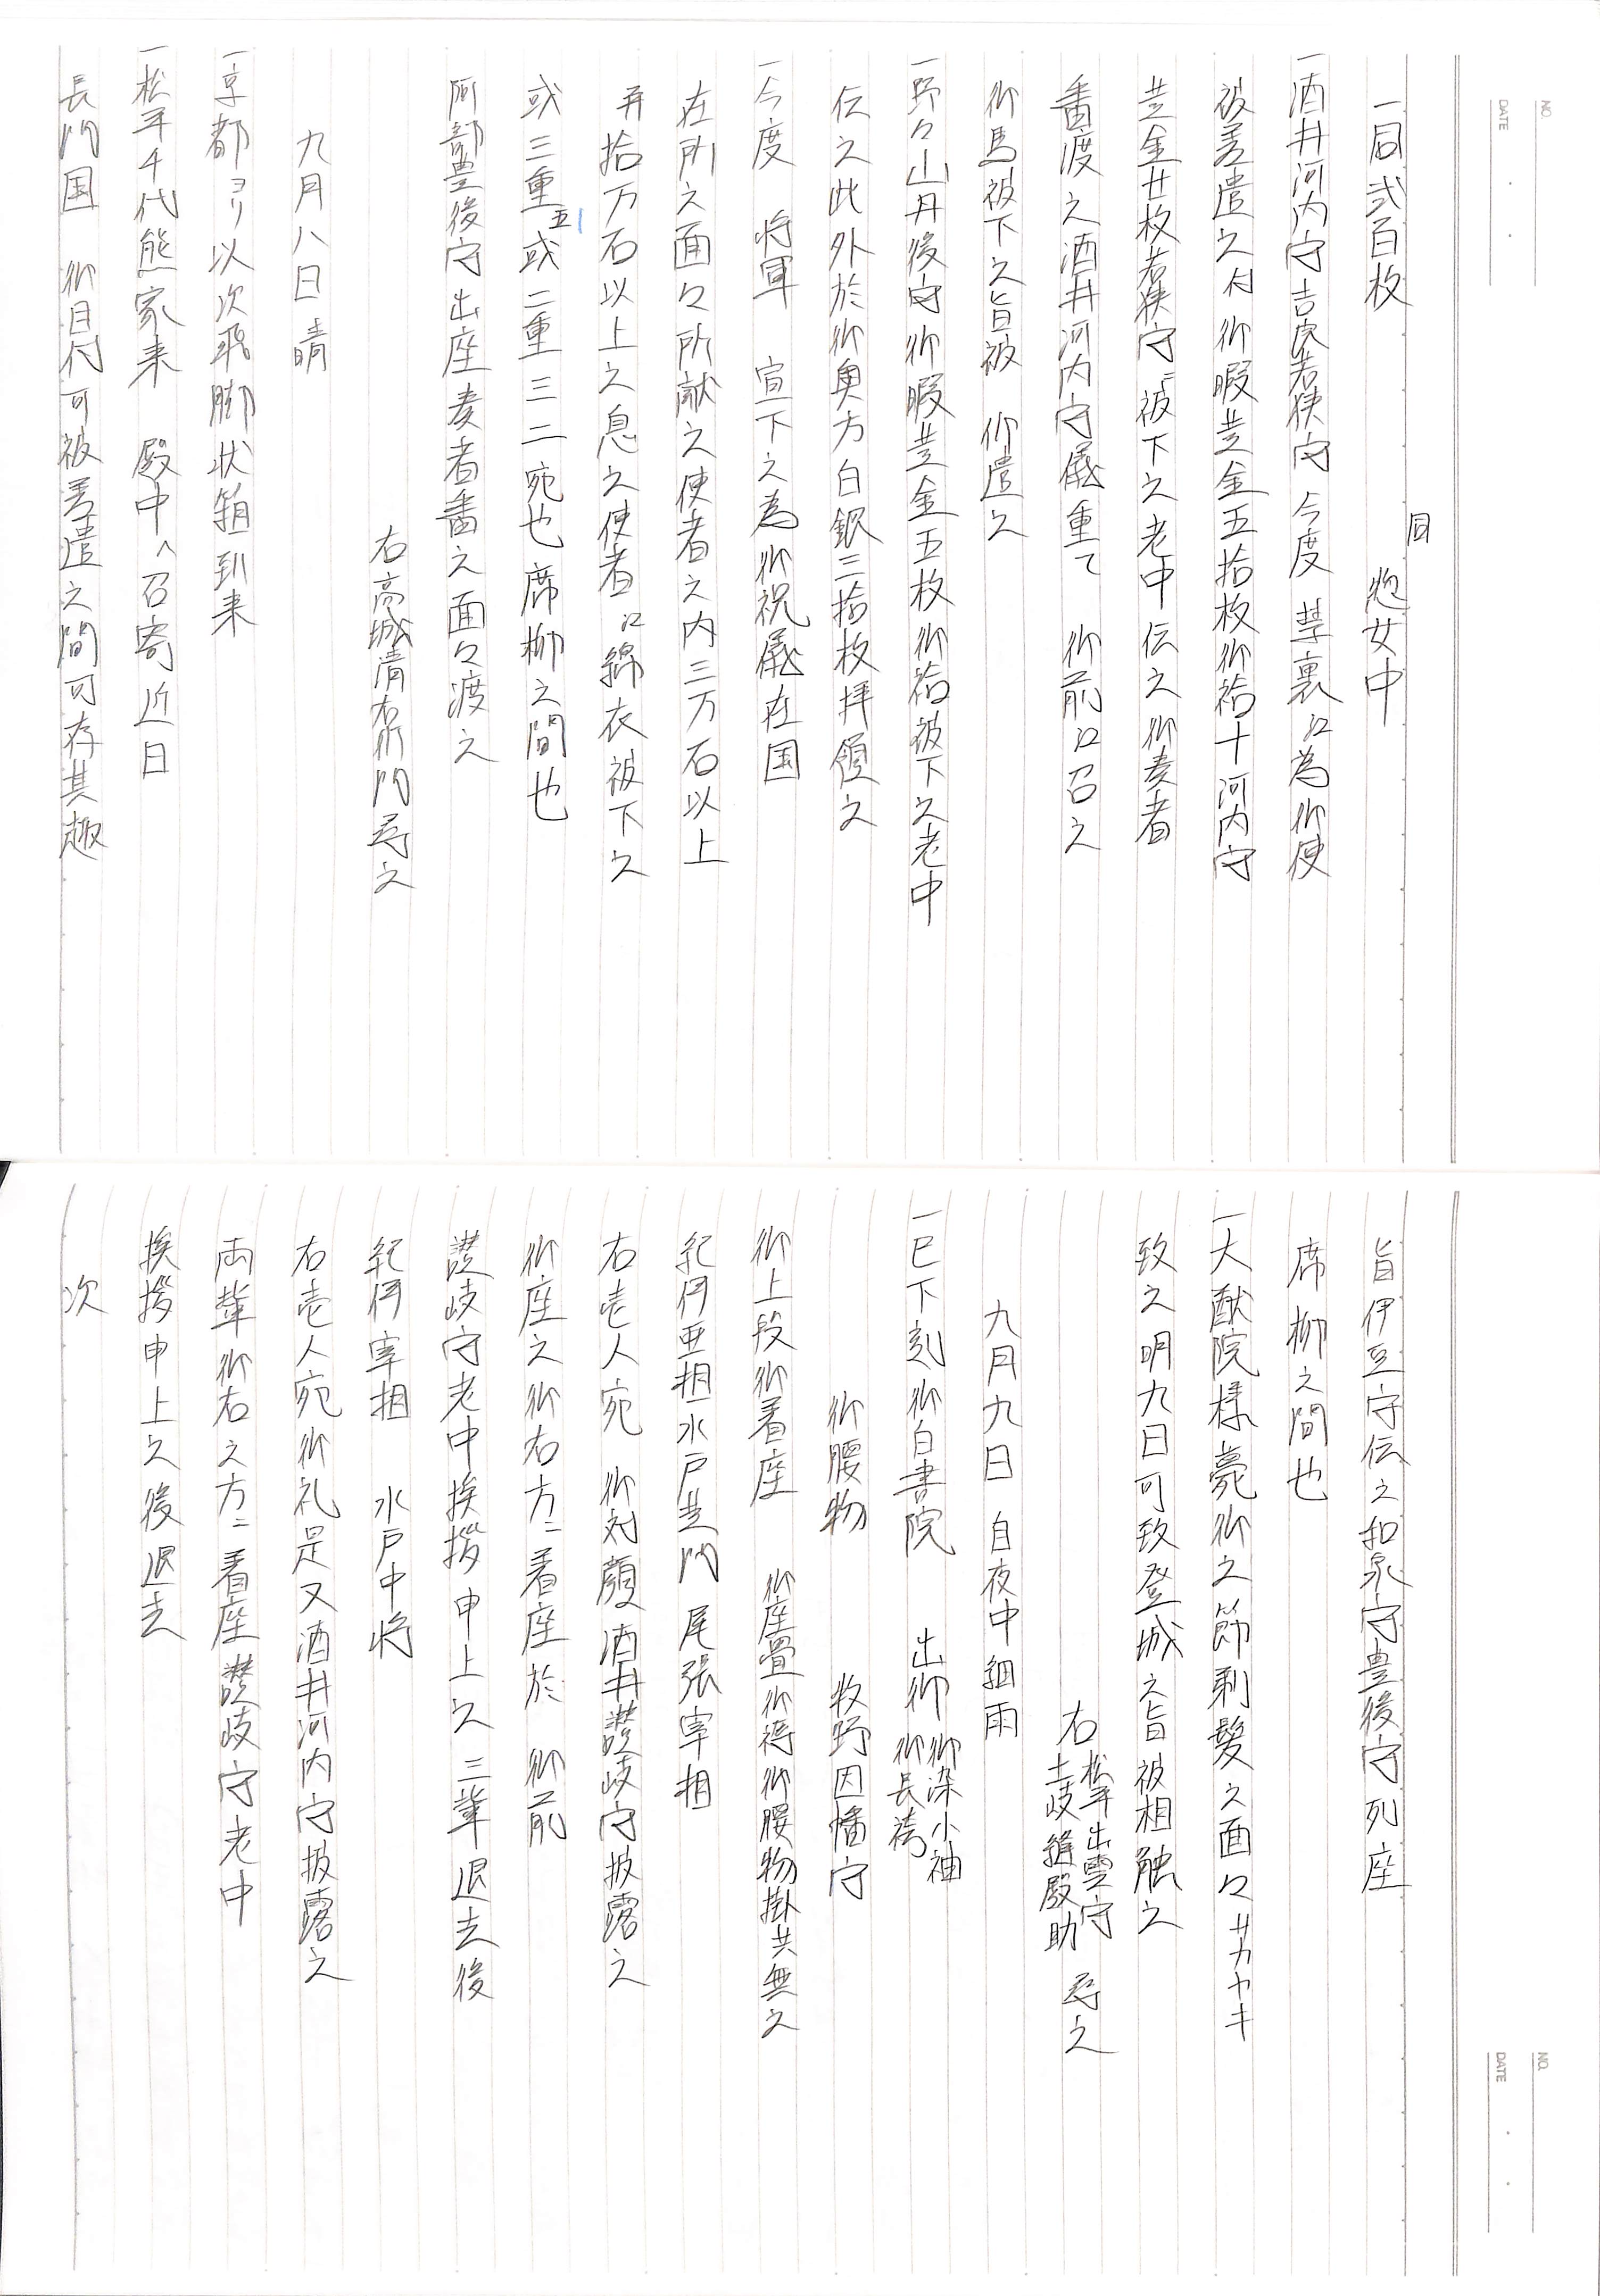 同
一同弐百枚　惣女中
一酒井河内守吉良若狭守 今度 禁裏江為御使
被差遣之付 御暇並金五拾枚御袷十河内守
並金廿枚若狭守ニ被下之老中伝之御奏者
番渡之酒井河内守儀重て 御前江召之
御馬被下之旨被 仰遣之
一野々山丹後守御暇並金五枚御袷被下之老中
伝之此外於御奥方白銀三拾枚拝領之
一今度 将軍 宣下之為御祝儀在国
在所之面々所献之使者之内三万石以上
并拾万石以上之息之使者江綿衣被下之
或三重五或二重三二宛也席柳之間也
阿部豊後守出座奏者番之面々渡之
右高城清右衛門尋之
九月八日晴
一京都ヨリ以次飛脚状箱到来
一松平千代熊家来 殿中へ召寄近日
長門国 御目付可被差遣之間可存其趣
旨伊豆守伝之和泉守豊後守列座
席柳之間也
一大猷院様薨御之節剃髪之面々サカヤキ
致之明九日可致登城之旨被相触之
右 松平出雲守 土岐縫殿助 尋之
九月九日 自夜中細雨
一巳下刻御白書院 出御 御染小袖 御長袴
御腰物　牧野因幡守
御上段御着座 御座畳御褥御腰物掛共無之
紀伊亜相水戸黄門 尾張宰相
右壱人宛 御対顔酒井讃岐守披露之
御座之御右方ニ着座於 御前
讃岐守老中挨拶申上之三輩退去後
紀伊宰相 水戸中将
右壱人宛御礼是又酒井河内守披露之
両輩御右之方ニ着座讃岐守老中
挨拶申上之後退去
次
NO.
DATE
NO.
DATE